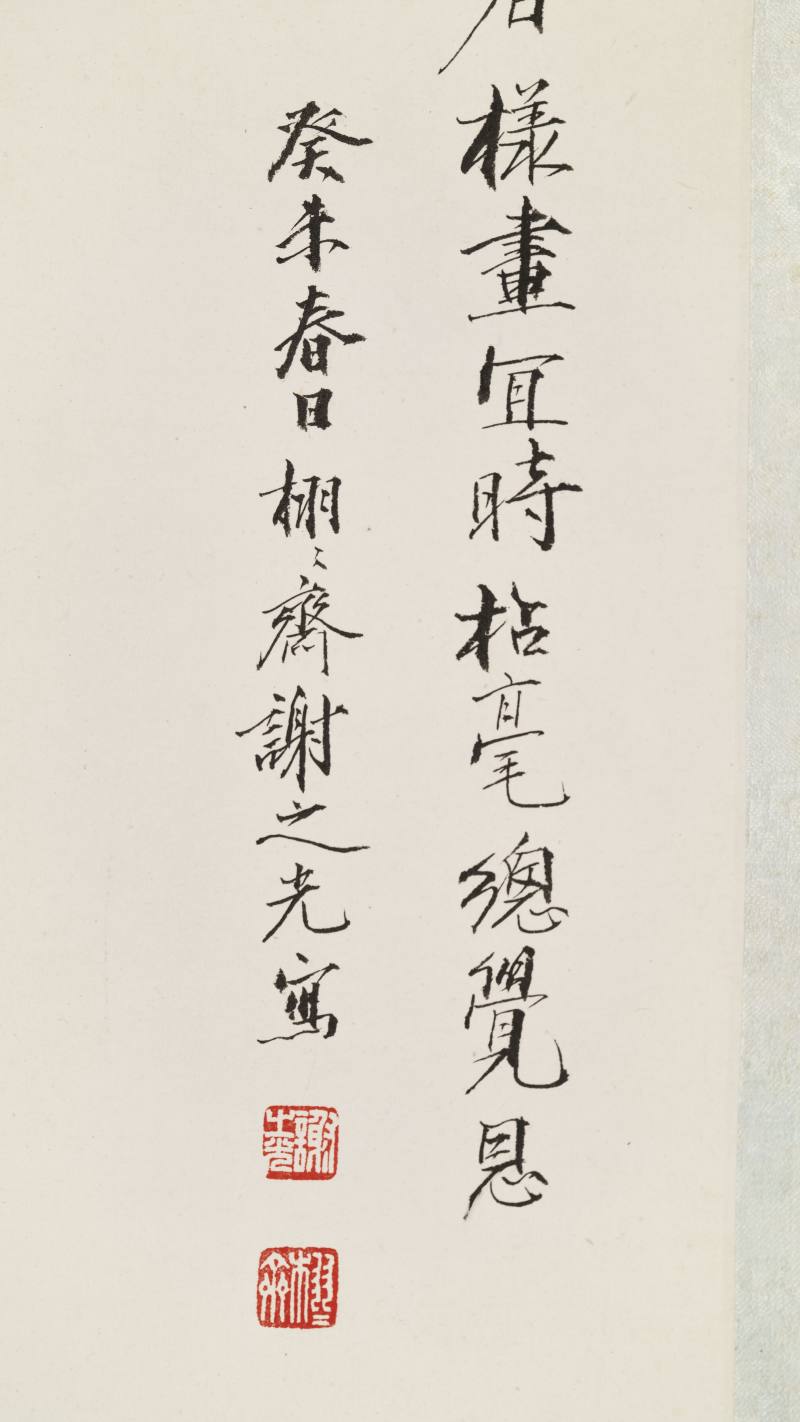 樣畫宜時拈毫總覺恩
癸未春日栩〻齋謝之光寫
謝之光
栩〻齋